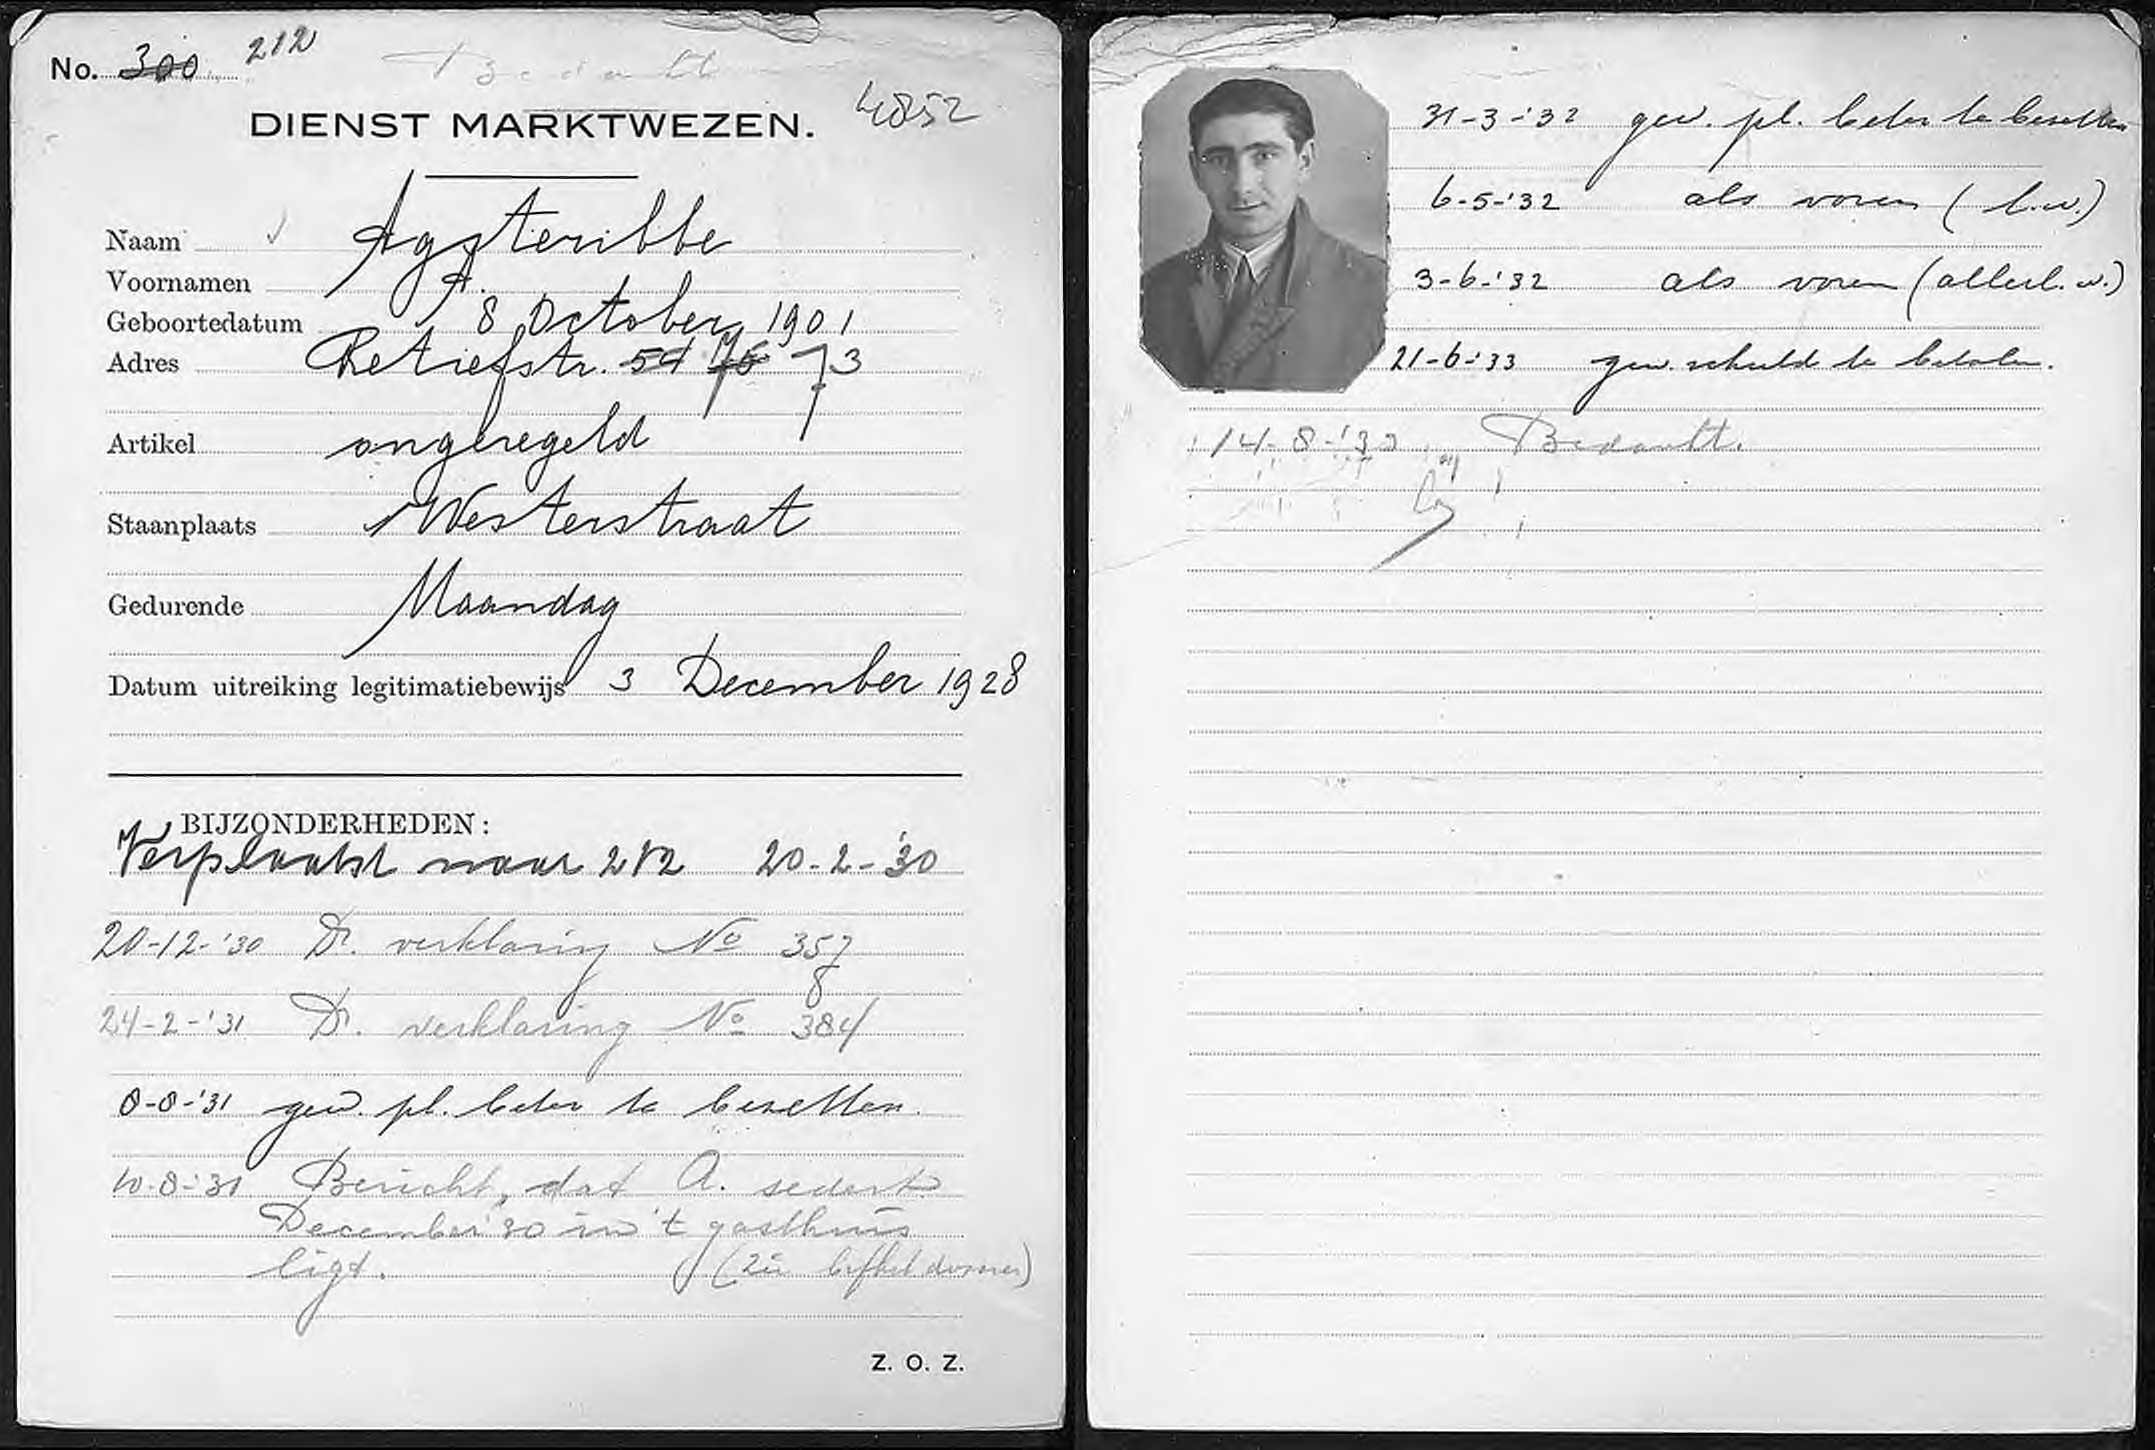 No. 300 212
Bedankt
DIENST MARKTWEZEN.
4852
Naam Agsteribbe
Voornamen A.
Geboortedatum 8 October 1901
Adres Retiefstr. 54 75 73
Artikel ongeregeld
Staanplaats Westerstraat
Gedurende Maandag
Datum uitreiking legitimatiebewijs 3 December 1928
BIJZONDERHEDEN:
Verplaatst naar 212 20-2-'30
20-12-'30 Dr. verklaring No 357
8
24-2-'31 Dr. verklaring No 384
8-8-'31 gew. pl. beter te bezetten.
10-8-'31 Bericht, dat A. sedert
December '30 in 't gasthuis
ligt. (zie
Z. O. Z.
31-3-'32 gew. pl. beter te bezetten
6-5-'32 als voren (l.w.)
3-6-'32 als voren (allerl. w.)
21-6-'33 gew. schuld te betalen.
14-8-'33 Bedankt.